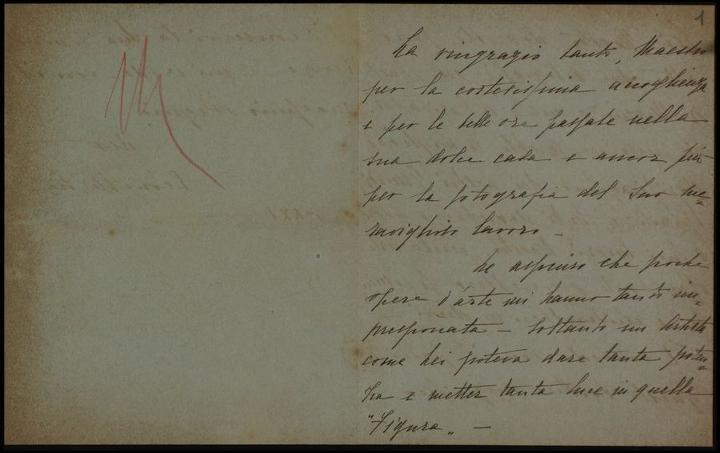 1
La ringrazio tanto, Maestro
per la cortesissima accoglienza
e per le belle ore passate nella
sua dolce casa e ancor più
per la fotografia del Suo me=
raviglioso lavoro –
Le assicuro che poche
opere d'arte mi hanno tanto im=
pressionata – Soltanto un Artista
come Lei poteva dare tanta poten=
za e metter tanta luce in quella
"Figura„ –